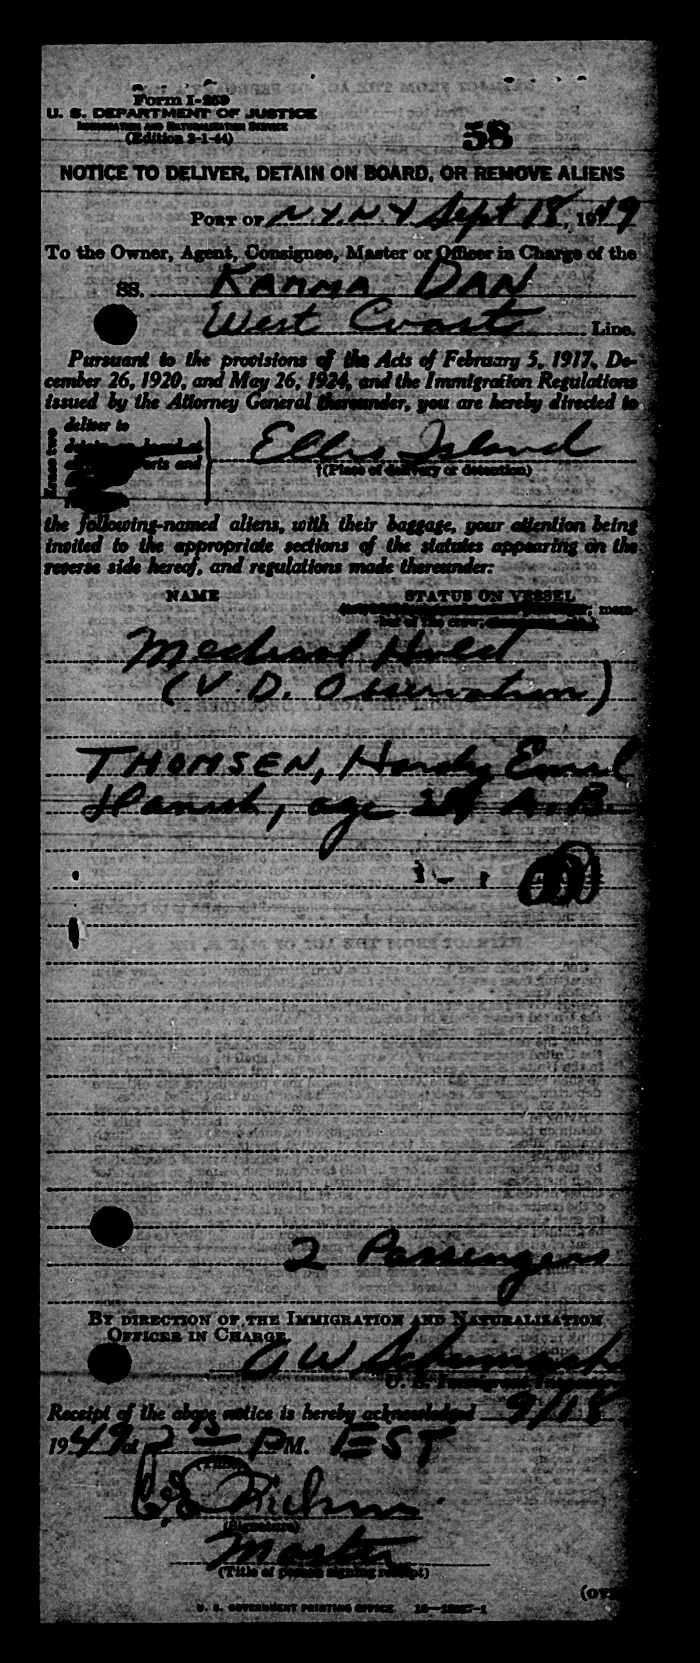 Form I-259
U. S. DEPARTMENT OF JUSTICE
IMMIGRATION AND NATURALIZATION SERVICE
(Edition 2-1-44)
58
NOTICE TO DELIVER, DETAIN ON BOARD, OR REMOVE ALIENS
PORT OF N.Y.N.Y Sept 18, 1949
To the Owner, Agent, Consignee, Master or Officer in Charge of the
SS. KAMMA DAN
West Coast Line.
Pursuant to the provisions of the Acts of February 5, 1917, De-
cember 26, 1920, and May 26, 1924, and the Immigration Regulations
issued by the Attorney General thereunder, you are hereby directed to
deliver to
Ellis Island
†(Place of delivery or detention)
the following-named aliens, with their baggage, your attention being
invited to the appropriate sections of the statutes appearing on the
reverse side hereof, and regulations made thereunder:
NAME STATUS ON VESSEL
mem-
ber of the crew,
Medical Hold
(V. D. Observation)
THOMSEN, Hardy Emil
Danish, age A. B.
1 - 1
2 Passengers
BY DIRECTION OF THE IMMIGRATION AND NATURALIZATION
OFFICER IN CHARGE.
A W
Receipt of the above notice is hereby acknowledged 9/18
1949 at 2 PM. EST
(Signature)
Master
(Title of person signing receipt)
U. S. GOVERNMENT PRINTING OFFICE